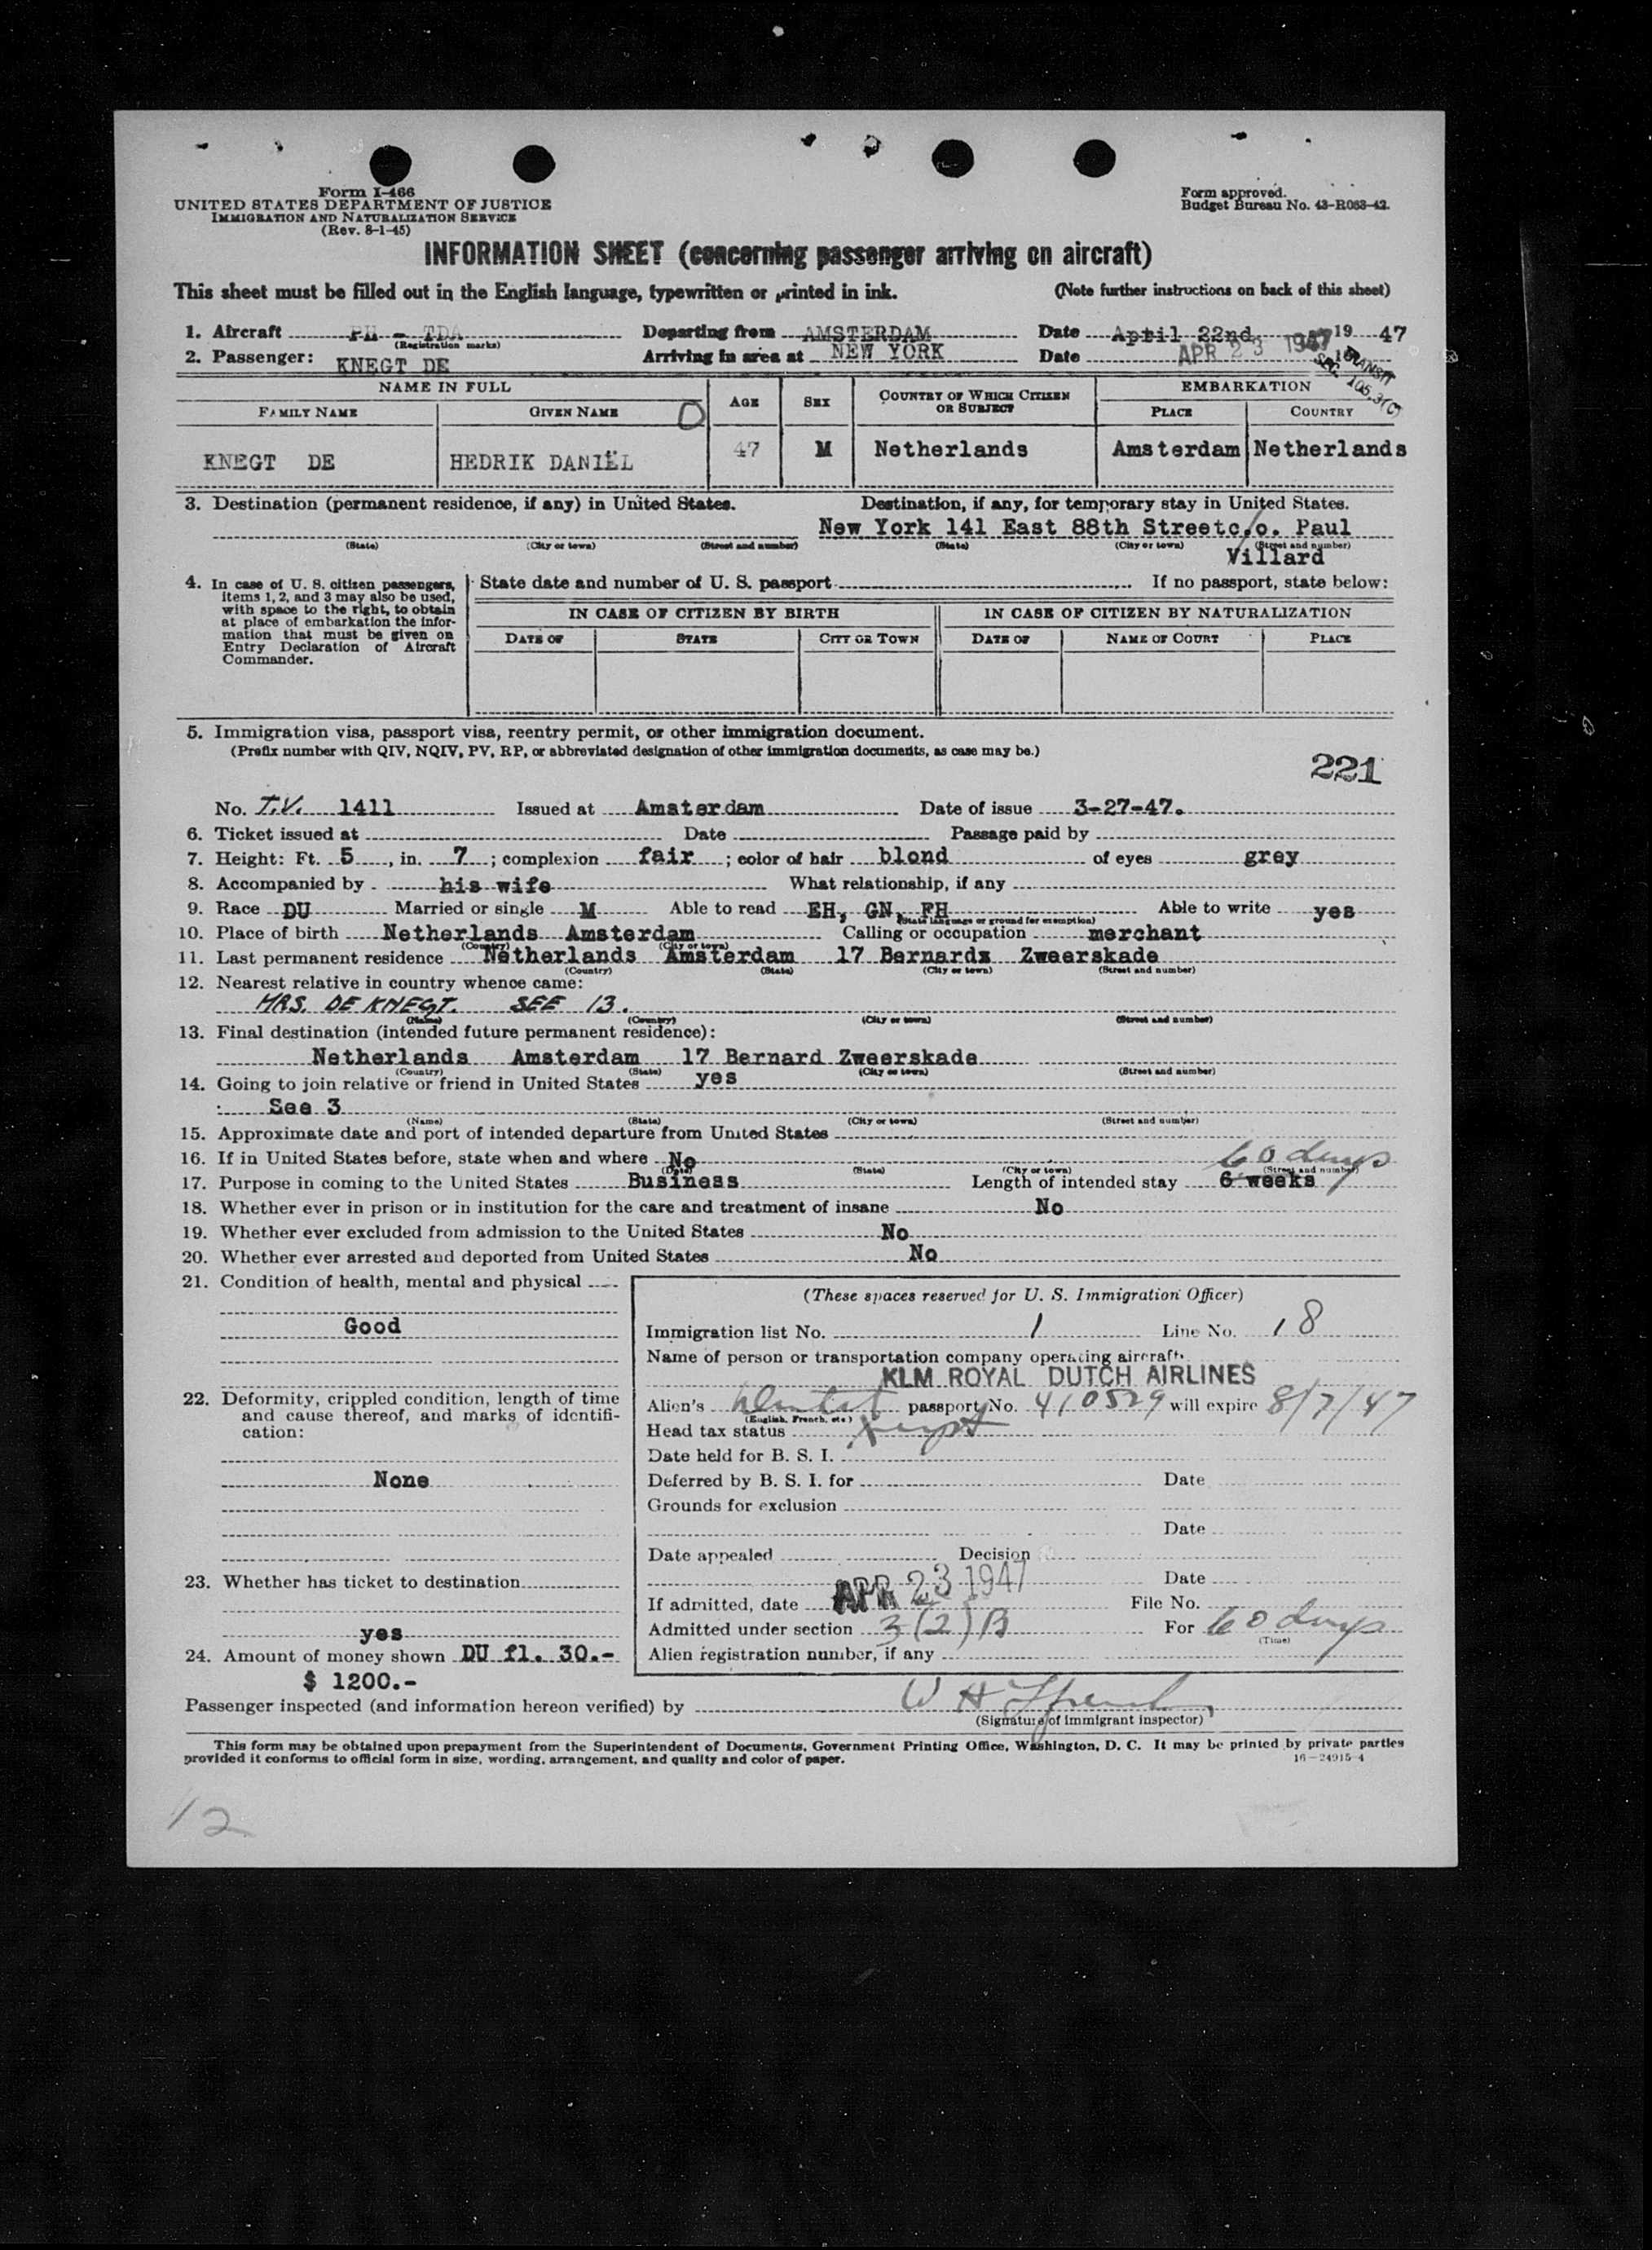 Form I-466
UNITED STATES DEPARTMENT OF JUSTICE
IMMIGRATION AND NATURALIZATION SERVICE
(Rev. 8-1-45)
Form approved.
Budget Bureau No. 43-R083-42.
INFORMATION SHEET (concerning passenger arriving on aircraft)
This sheet must be filled out in the English language, typewritten or printed in ink. (Note further instructions on back of this sheet)
1. Aircraft PH - TDA Departing from AMSTERDAM Date April 22nd 1947 19 47
(Registration marks)
2. Passenger: KNEGT DE Arriving in area at NEW YORK Date APR 23 1947
TRANSIT
SEC. 105.3(C)
NAME IN FULL AGE SEX COUNTRY OF WHICH CITIZEN OR SUBJECT EMBARKATION
FAMILY NAME GIVEN NAME PLACE COUNTRY
KNEGT DE HEDRIK DANIËL 47 M Netherlands Amsterdam Netherlands
3. Destination (permanent residence, if any) in United States. Destination, if any, for temporary stay in United States.
New York 141 East 88th Street c/o. Paul
(State) (City or town) (Street and number) (State) (City or town) (Street and number)
Villard
4. In case of U. S. citizen passengers, items 1, 2, and 3 may also be used, with space to the right, to obtain at place of embarkation the information that must be given on Entry Declaration of Aircraft Commander.
State date and number of U. S. passport If no passport, state below:
IN CASE OF CITIZEN BY BIRTH IN CASE OF CITIZEN BY NATURALIZATION
DATE OF STATE CITY OR TOWN DATE OF NAME OF COURT PLACE
5. Immigration visa, passport visa, reentry permit, or other immigration document.
(Prefix number with QIV, NQIV, PV, RP, or abbreviated designation of other immigration documents, as case may be.)
221
No. T.V. 1411 Issued at Amsterdam Date of issue 3-27-47.
6. Ticket issued at Date Passage paid by
7. Height: Ft. 5, in. 7; complexion fair; color of hair blond of eyes grey
8. Accompanied by his wife What relationship, if any
9. Race DU Married or single M Able to read EH, GN, FH Able to write yes
(State language or ground for exemption)
10. Place of birth Netherlands Amsterdam Calling or occupation merchant
(Country) (City or town)
11. Last permanent residence Netherlands Amsterdam 17 Bernards Zweerskade
(Country) (State) (City or town) (Street and number)
12. Nearest relative in country whence came:
MRS. DE KNEGT. SEE 13.
(Name) (Country) (City or town) (Street and number)
13. Final destination (intended future permanent residence):
Netherlands Amsterdam 17 Bernard Zweerskade
(Country) (State) (City or town) (Street and number)
14. Going to join relative or friend in United States yes
See 3
(Name) (State) (City or town) (Street and number)
15. Approximate date and port of intended departure from United States
16. If in United States before, state when and where No 60 days
(Date) (State) (City or town) (Street and number)
17. Purpose in coming to the United States Business Length of intended stay 6 weeks
18. Whether ever in prison or in institution for the care and treatment of insane No
19. Whether ever excluded from admission to the United States No
20. Whether ever arrested and deported from United States No
21. Condition of health, mental and physical
Good
22. Deformity, crippled condition, length of time and cause thereof, and marks of identification:
None
23. Whether has ticket to destination
yes
24. Amount of money shown DU fl. 30.-
$ 1200.-
(These spaces reserved for U. S. Immigration Officer)
Immigration list No. 1 Line No. 18
Name of person or transportation company operating aircraft
KLM ROYAL DUTCH AIRLINES
Alien's passport No. 410529 will expire 8/7/47
(English, French, etc.)
Head tax status
Date held for B. S. I.
Deferred by B. S. I. for Date
Grounds for exclusion
Date
Date appealed Decision
Date
If admitted, date APR 23 1947 File No.
Admitted under section 3(2)B For 60 days
(Time)
Alien registration number, if any
Passenger inspected (and information hereon verified) by W H
(Signature of immigrant inspector)
This form may be obtained upon prepayment from the Superintendent of Documents, Government Printing Office, Washington, D. C. It may be printed by private parties
provided it conforms to official form in size, wording, arrangement, and quality and color of paper.
16-24915-4
12